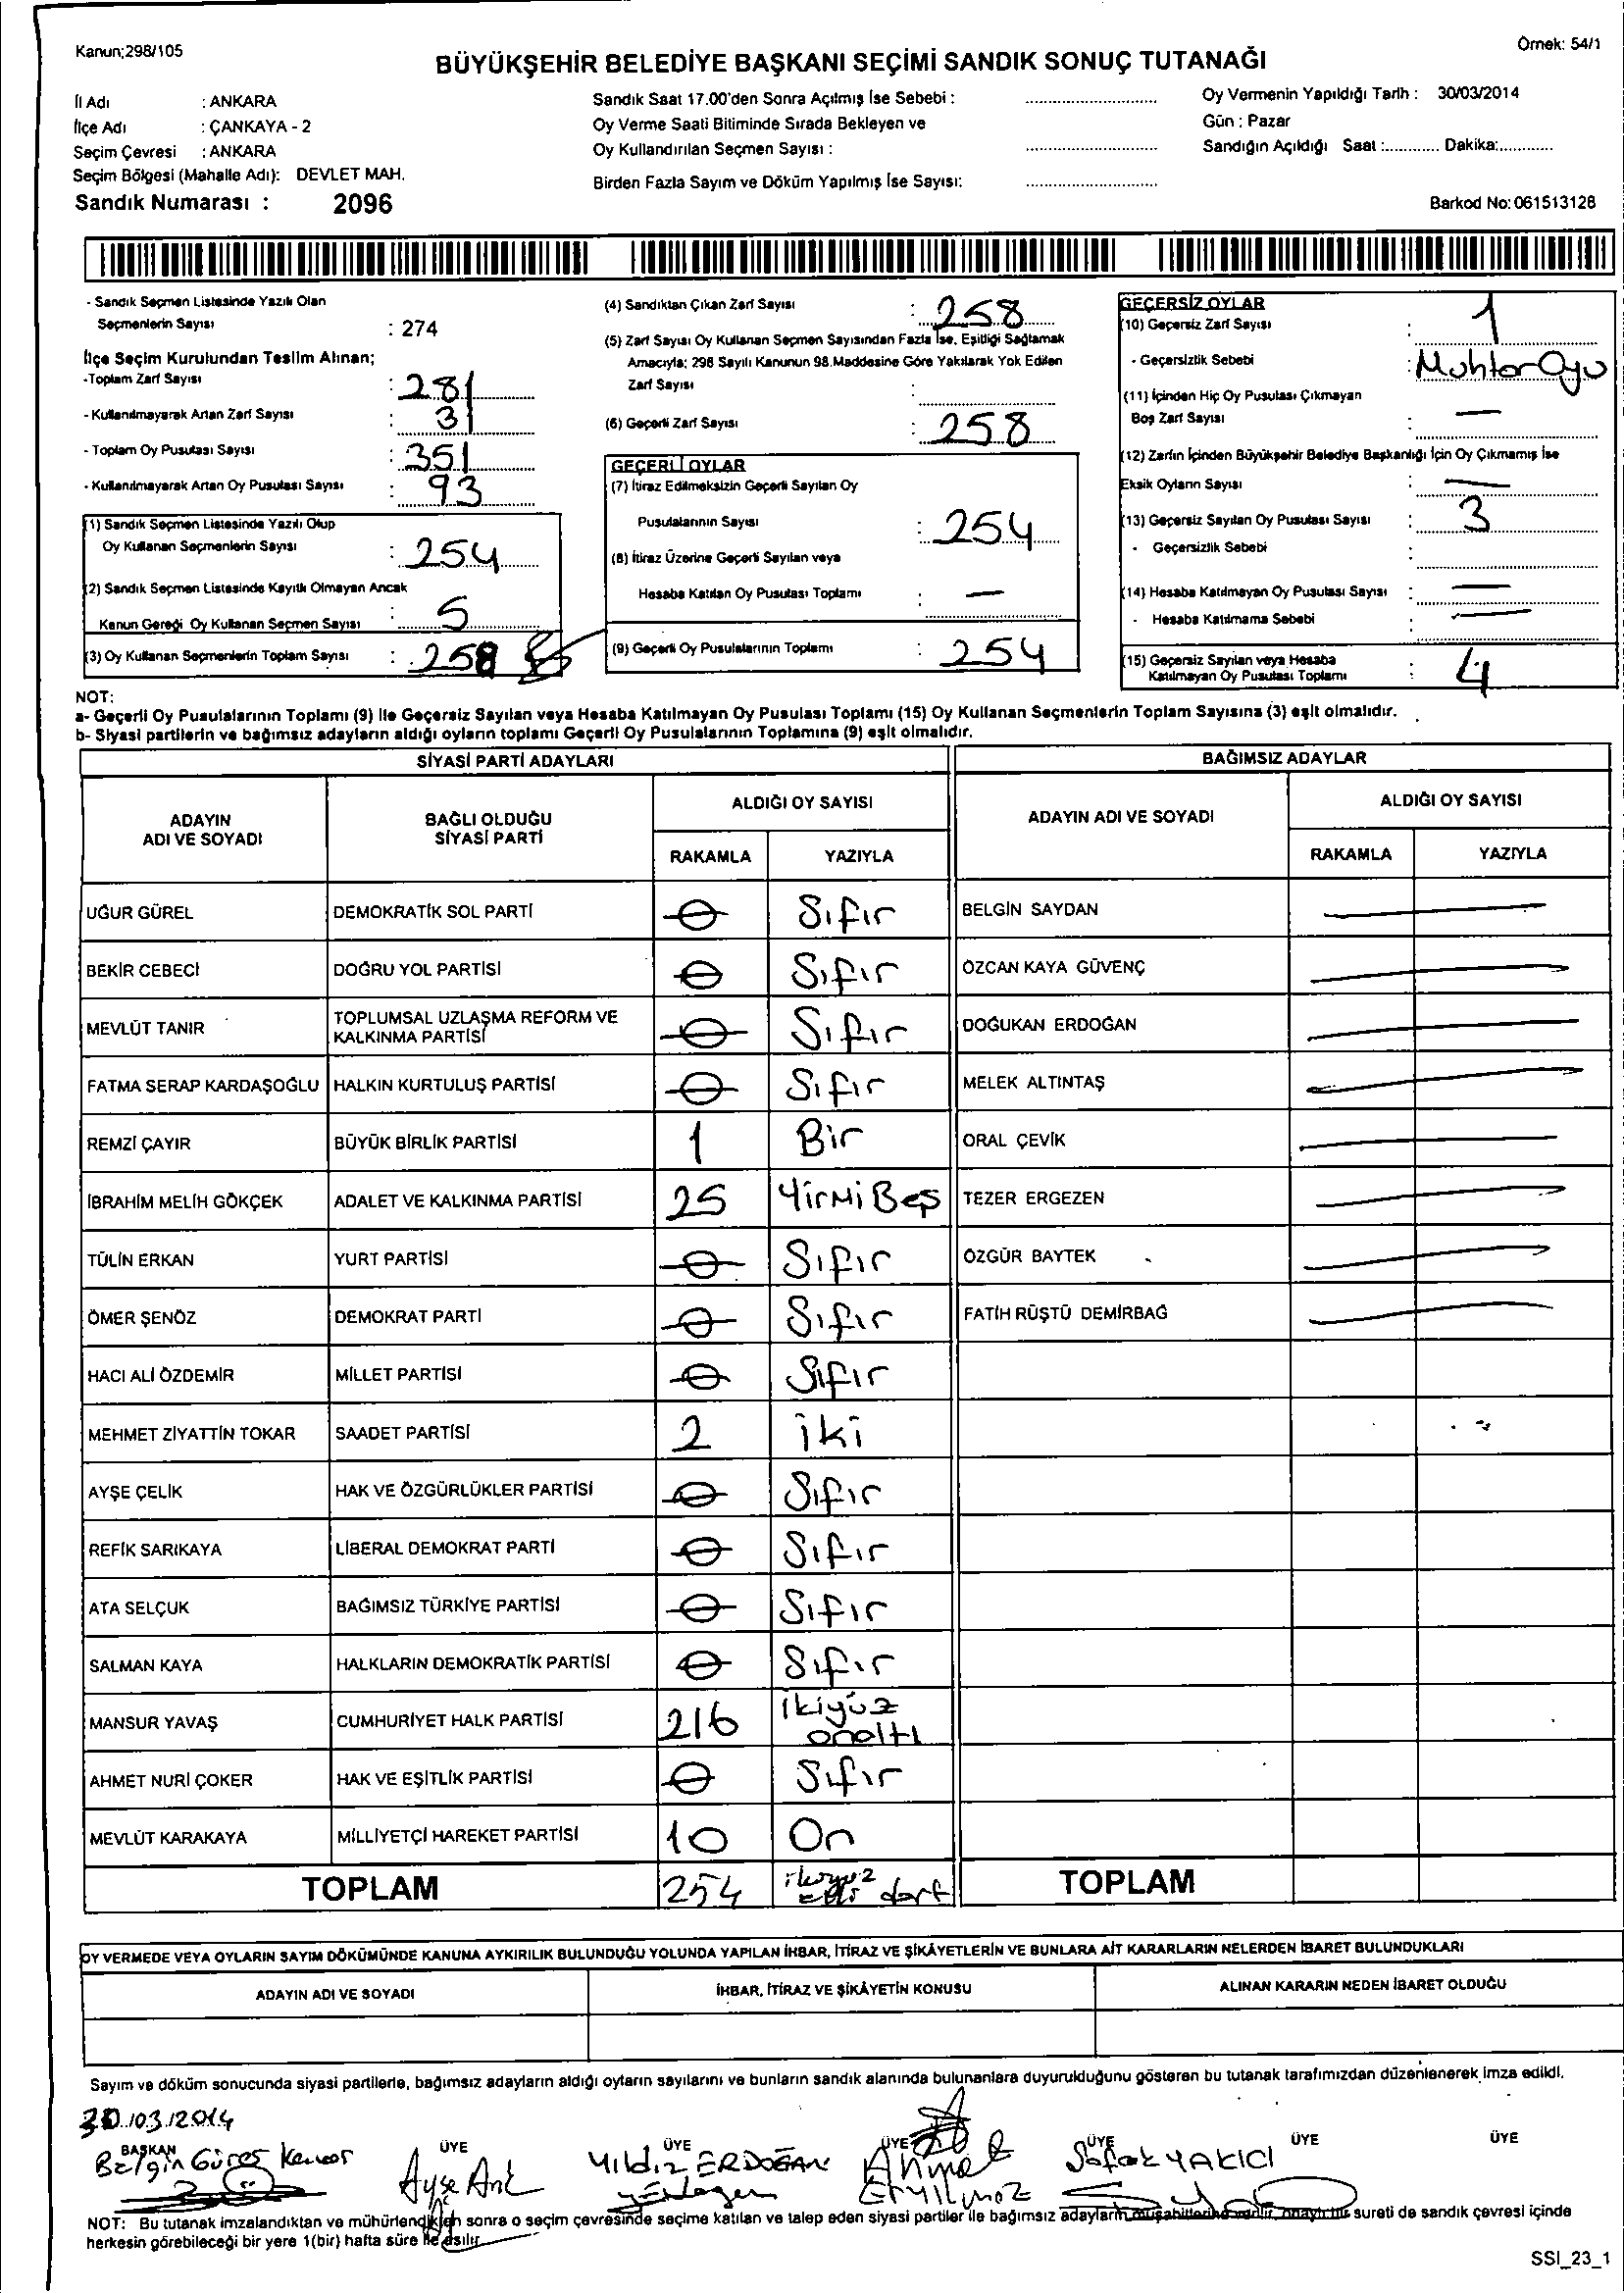 Kanun;298/105
Örnek: 54/1
BÜYÜKŞEHİR BELEDİYE BAŞKANI SEÇİMİ SANDIK SONUÇ TUTANAĞI
İl Adı : ANKARA
İlçe Adı : ÇANKAYA - 2
Seçim Çevresi : ANKARA
Seçim Bölgesi (Mahalle Adı): DEVLET MAH.
Sandık Numarası : 2096
Sandık Saat 17.00'den Sonra Açılmış İse Sebebi :
Oy Verme Saati Bitiminde Sırada Bekleyen ve
Oy Kullandırılan Seçmen Sayısı :
Birden Fazla Sayım ve Döküm Yapılmış İse Sayısı:
Oy Vermenin Yapıldığı Tarih : 30/03/2014
Gün : Pazar
Sandığın Açıldığı Saat :............ Dakika:............
Barkod No: 061513128
- Sandık Seçmen Listesinde Yazılı Olan
Seçmenlerin Sayısı : 274
İlçe Seçim Kurulundan Teslim Alınan;
-Toplam Zarf Sayısı : 281
- Kullanılmayarak Artan Zarf Sayısı : 31
- Toplam Oy Pusulası Sayısı : 351
- Kullanılmayarak Artan Oy Pusulası Sayısı : 93
(1) Sandık Seçmen Listesinde Yazılı Olup
Oy Kullanan Seçmenlerin Sayısı : 254
(2) Sandık Seçmen Listesinde Kayıtlı Olmayan Ancak
Kanun Gereği Oy Kullanan Seçmen Sayısı : 5
(3) Oy Kullanan Seçmenlerin Toplam Sayısı : 258
(4) Sandıktan Çıkan Zarf Sayısı : 258
(5) Zarf Sayısı Oy Kullanan Seçmen Sayısından Fazla İse, Eşitliği Sağlamak
Amacıyla; 298 Sayılı Kanunun 98.Maddesine Göre Yakılarak Yok Edilen
Zarf Sayısı :
(6) Geçerli Zarf Sayısı : 258
GEÇERLİ OYLAR
(7) İtiraz Edilmeksizin Geçerli Sayılan Oy
Pusulalarının Sayısı : 254
(8) İtiraz Üzerine Geçerli Sayılan veya
Hesaba Katılan Oy Pusulası Toplamı : —
(9) Geçerli Oy Pusulalarının Toplamı : 254
GEÇERSİZ OYLAR
(10) Geçersiz Zarf Sayısı : 1
- Geçersizlik Sebebi : Muhtar Oyu
(11) İçinden Hiç Oy Pusulası Çıkmayan
Boş Zarf Sayısı : —
(12) Zarfın İçinden Büyükşehir Belediye Başkanlığı İçin Oy Çıkmamış İse
Eksik Oyların Sayısı : —
(13) Geçersiz Sayılan Oy Pusulası Sayısı : 3
- Geçersizlik Sebebi :
(14) Hesaba Katılmayan Oy Pusulası Sayısı : —
- Hesaba Katılmama Sebebi : —
(15) Geçersiz Sayılan veya Hesaba
Katılmayan Oy Pusulası Toplamı : 4
NOT:
a- Geçerli Oy Pusulalarının Toplamı (9) İle Geçersiz Sayılan veya Hesaba Katılmayan Oy Pusulası Toplamı (15) Oy Kullanan Seçmenlerin Toplam Sayısına (3) eşit olmalıdır.
b- Siyasi partilerin ve bağımsız adayların aldığı oyların toplamı Geçerli Oy Pusulalarının Toplamına (9) eşit olmalıdır.
SİYASİ PARTİ ADAYLARI BAĞIMSIZ ADAYLAR
ADAYIN
ADI VE SOYADI
BAĞLI OLDUĞU
SİYASİ PARTİ
ALDIĞI OY SAYISI
RAKAMLA YAZIYLA
ADAYIN ADI VE SOYADI
ALDIĞI OY SAYISI
RAKAMLA YAZIYLA
UĞUR GÜREL DEMOKRATİK SOL PARTİ 0 Sıfır BELGİN SAYDAN —
BEKİR CEBECİ DOĞRU YOL PARTİSİ 0 Sıfır ÖZCAN KAYA GÜVENÇ —
MEVLÜT TANIR TOPLUMSAL UZLAŞMA REFORM VE
KALKINMA PARTİSİ 0 Sıfır DOĞUKAN ERDOĞAN —
FATMA SERAP KARDAŞOĞLU HALKIN KURTULUŞ PARTİSİ 0 Sıfır MELEK ALTINTAŞ —
REMZİ ÇAYIR BÜYÜK BİRLİK PARTİSİ 1 Bir ORAL ÇEVİK —
İBRAHİM MELİH GÖKÇEK ADALET VE KALKINMA PARTİSİ 25 Yirmi Beş TEZER ERGEZEN —
TÜLİN ERKAN YURT PARTİSİ 0 Sıfır ÖZGÜR BAYTEK —
ÖMER ŞENÖZ DEMOKRAT PARTİ 0 Sıfır FATİH RÜŞTÜ DEMİRBAĞ —
HACI ALİ ÖZDEMİR MİLLET PARTİSİ 0 Sıfır
MEHMET ZİYATTİN TOKAR SAADET PARTİSİ 2 iki
AYŞE ÇELİK HAK VE ÖZGÜRLÜKLER PARTİSİ 0 Sıfır
REFİK SARIKAYA LİBERAL DEMOKRAT PARTİ 0 Sıfır
ATA SELÇUK BAĞIMSIZ TÜRKİYE PARTİSİ 0 Sıfır
SALMAN KAYA HALKLARIN DEMOKRATİK PARTİSİ 0 Sıfır
MANSUR YAVAŞ CUMHURİYET HALK PARTİSİ 216 ikiyüz
onaltı
AHMET NURİ ÇOKER HAK VE EŞİTLİK PARTİSİ 0 Sıfır
MEVLÜT KARAKAYA MİLLİYETÇİ HAREKET PARTİSİ 10 On
TOPLAM 254 ikiyüz
elli dört TOPLAM
OY VERMEDE VEYA OYLARIN SAYIM DÖKÜMÜNDE KANUNA AYKIRILIK BULUNDUĞU YOLUNDA YAPILAN İHBAR, İTİRAZ VE ŞİKÂYETLERİN VE BUNLARA AİT KARARLARIN NELERDEN İBARET BULUNDUKLARI
ADAYIN ADI VE SOYADI İHBAR, İTİRAZ VE ŞİKÂYETİN KONUSU ALINAN KARARIN NEDEN İBARET OLDUĞU
Sayım ve döküm sonucunda siyasi partilerle, bağımsız adayların aldığı oyların sayılarını ve bunların sandık alanında bulunanlara duyurulduğunu gösteren bu tutanak tarafımızdan düzenlenerek imza edildi.
30.03.2014
BAŞKAN ÜYE ÜYE ÜYE ÜYE ÜYE ÜYE
Belgin Ayşe Arık Yıldız ERDOĞAN Ahmet Şafak YAKICI
ERYILMAZ
NOT: Bu tutanak imzalandıktan ve mühürlendikten sonra o seçim çevresinde seçime katılan ve talep eden siyasi partiler ile bağımsız adayların müşahitlerine verilir, onaylı bir sureti de sandık çevresi içinde
herkesin görebileceği bir yere 1(bir) hafta süre ile asılır.
SSI_23_1